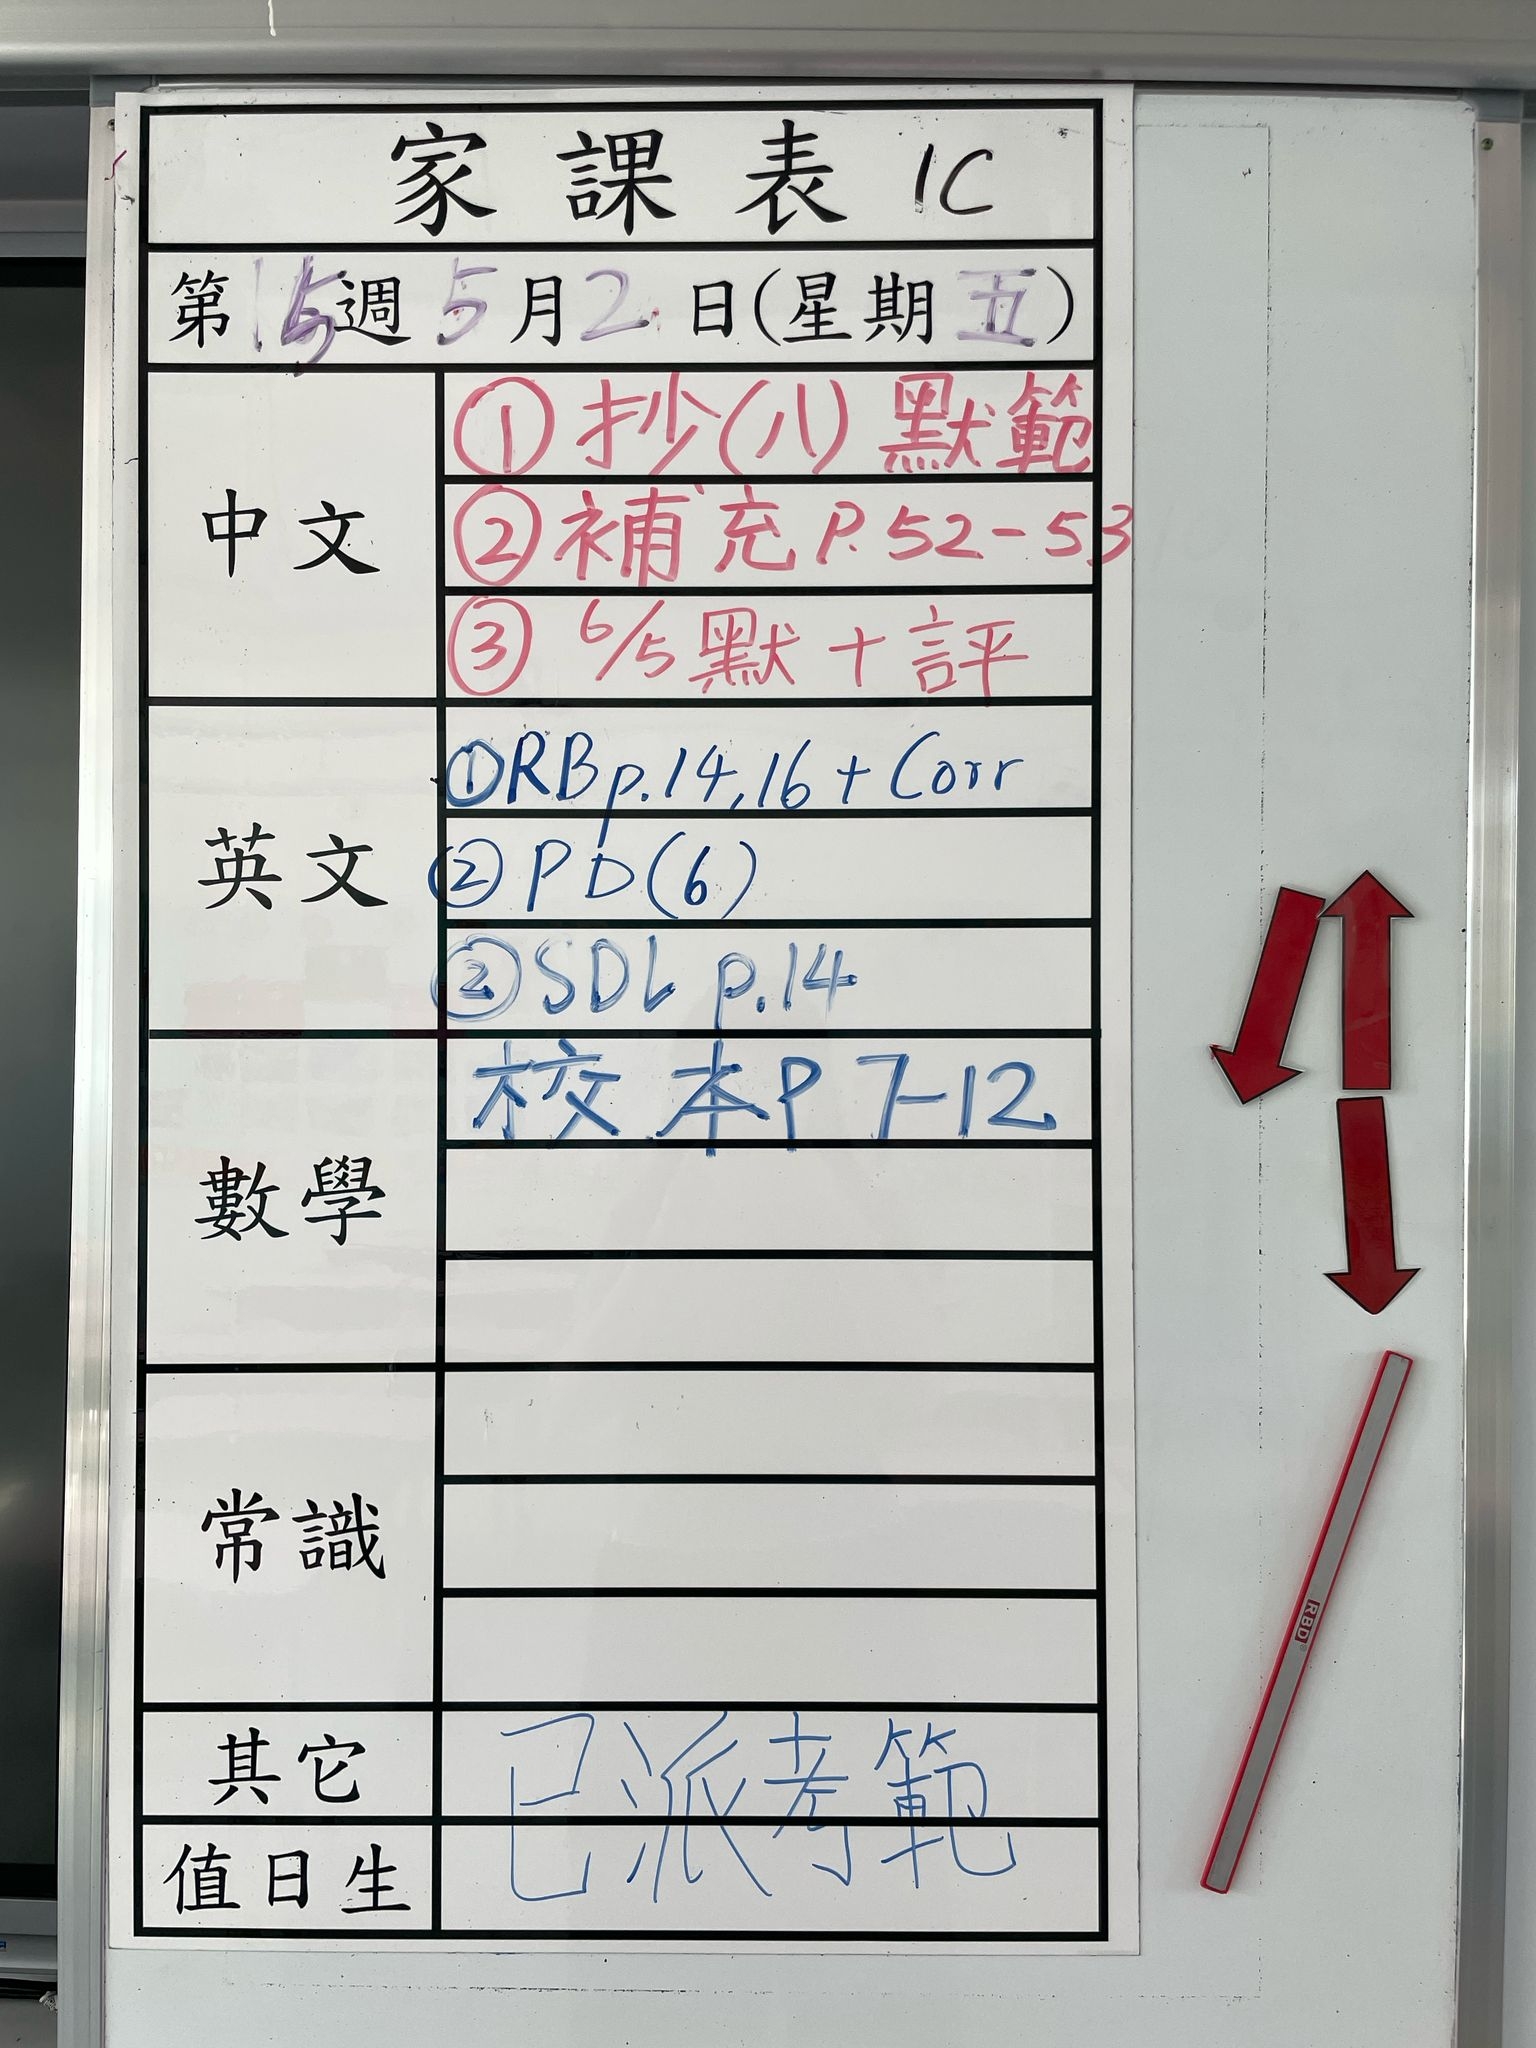 家課表 1C
第15週 5月2日(星期五)
中文
① 抄(八) 默範
② 補充 P.52-53
③ 6/5 默+評
英文
① RB p.14,16 + Corr
② PD(6)
② SDL p.14
數學
校本P 7-12
常識
其它
已派考範
值日生
RBD